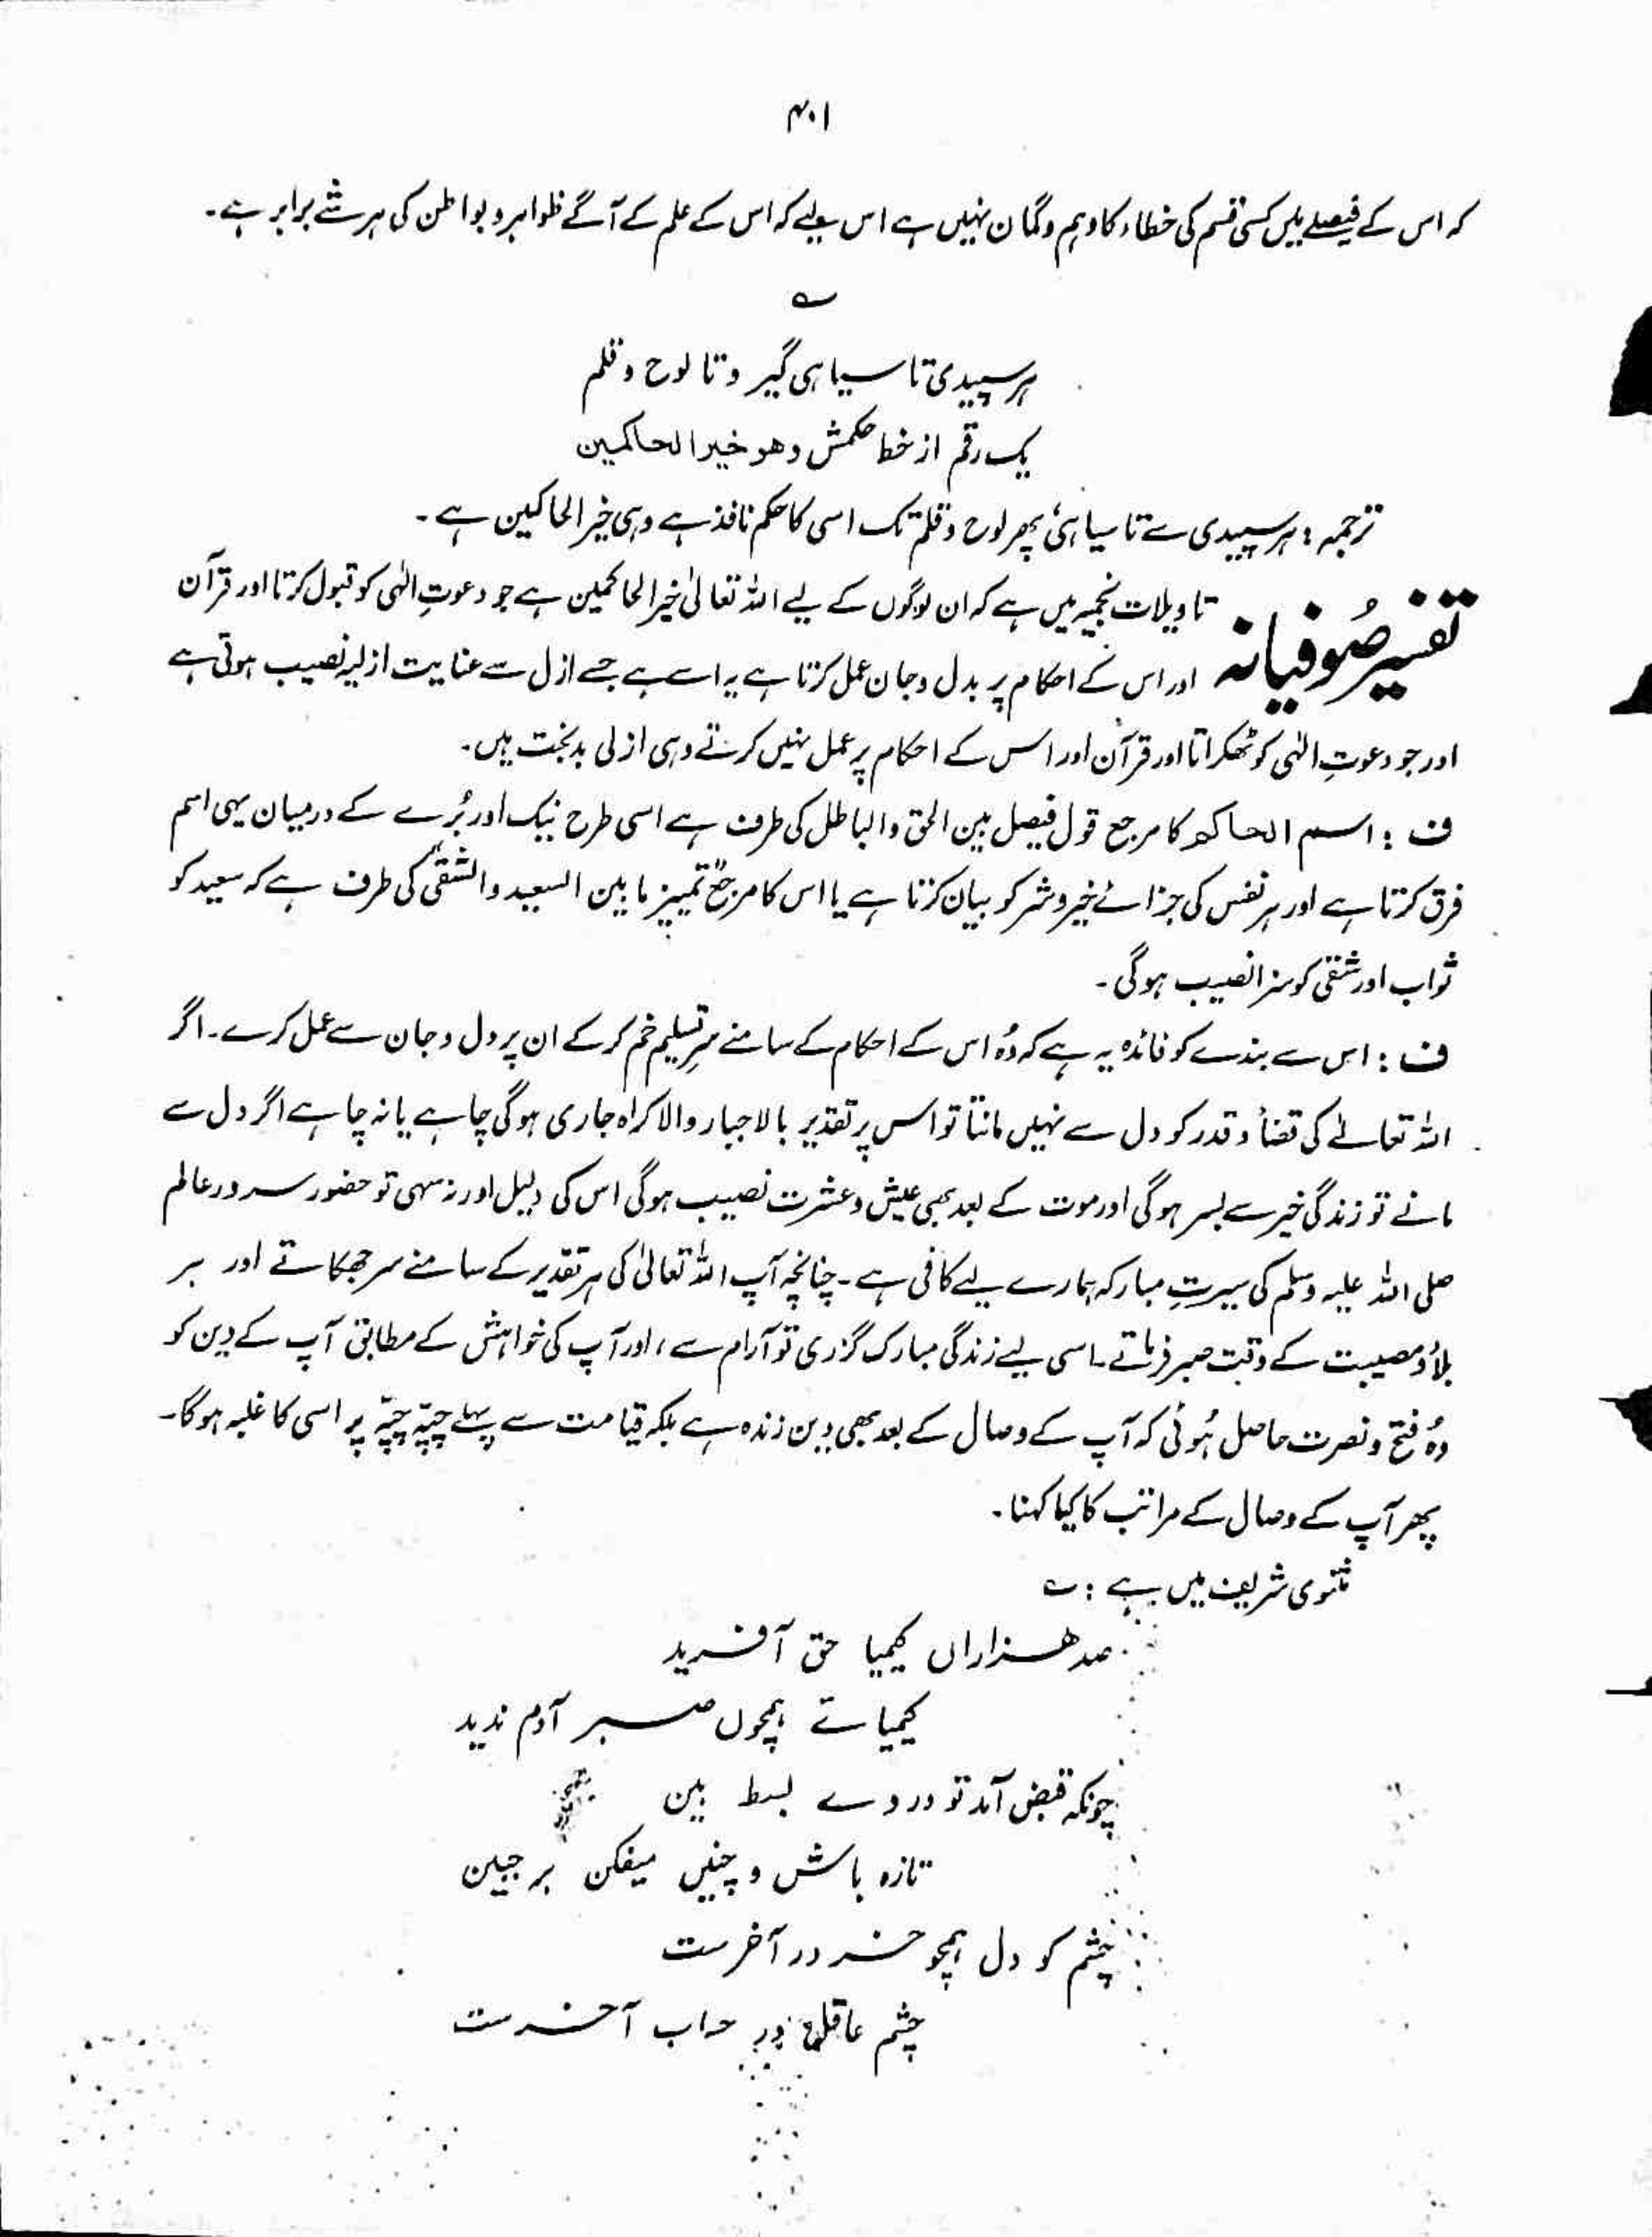 ۴۰۱
کہ اس کے فیصلے میں کسی قسم کی خطاء کا وہم و گمان نہیں ہے اس لیے کہ اس کے علم کے آگے ظواہر و بواطن کی ہر شے برابر ہے۔
؎
ہر سپیدی تا سیاہی گیر و تا لوح و قلم
یک رقم از خط حکمش وھو خیر الحاکمین
ترجمہ : ہر سپیدی سے تا سیاہی پھر لوح و قلم تک اسی کا حکم نافذ ہے وہی خیر الحاکمین ہے۔
تفسیر صُوفیانہ
تاویلات نجمیہ میں ہے کہ ان لوگوں کے لیے اللہ تعالیٰ خیر الحاکمین ہے جو دعوتِ الٰہی کو قبول کرتا اور قرآن
اور اس کے احکام پر بدل و جان عمل کرتا ہے یہ اسے ہے جسے ازل سے عنایت ازلیہ نصیب ہوتی ہے
اور جو دعوتِ الٰہی کو ٹھکراتا اور قرآن اور اس کے احکام پر عمل نہیں کرتے وہی ازلی بدبخت ہیں۔
ف : اسم الحاکم کا مرجع قول فیصل بین الحق والباطل کی طرف ہے اسی طرح نیک اور بُرے کے درمیان یہی اسم
فرق کرتا ہے اور ہر نفس کی جزائے خیر و شر کو بیان کرتا ہے یا اس کا مرجع تمییز مابین السعید والشقی کی طرف ہے کہ سعید کو
ثواب اور شقی کو سزا نصیب ہوگی۔
ف : اس سے بندے کو فائدہ یہ ہے کہ وُہ اس کے احکام کے سامنے سرِ تسلیم خم کرکے ان پر دل و جان سے عمل کرے۔ اگر
اللہ تعالےٰ کی قضأ و قدر کو دل سے نہیں مانتا تو اس پر تقدیر بالاجبار والاکراہ جاری ہوگی چاہے یا نہ چاہے اگر دل سے
مانے تو زندگی خیر سے بسر ہوگی اور موت کے بعد بھی عیش و عشرت نصیب ہوگی اس کی دلیل اور نہ سہی تو حضور سرور عالم
صلی اللہ علیہ وسلم کی سیرتِ مبارکہ ہمارے لیے کافی ہے۔ چنانچہ آپ اللہ تعالیٰ کی ہر تقدیر کے سامنے سر جھکاتے اور ہر
بلاؤ مصیبت کے وقت صبر فرماتے۔ اسی لیے زندگی مبارک گزری تو آرام سے، اور آپ کی خواہش کے مطابق آپ کے دین کو
وُہ فتح و نصرت حاصل ہُوئی کہ آپ کے وصال کے بعد بھی دین زندہ ہے بلکہ قیامت سے پہلے چپّہ چپّہ پر اسی کا غلبہ ہوگا۔
پھر آپ کے وصال کے مراتب کا کیا کہنا۔
مثنوی شریف میں ہے : ؎
صد ھزاراں کیمیا حق آفرید
کیمیائے ہمچوں صبر آدم ندید
چونکہ قبض آمد تو در وے بسط بین
تازہ باش و چنیں میفکن بر جبین
چشم کو دل ہمچو خر در آخرست
چشم عاقل در حساب آخرست